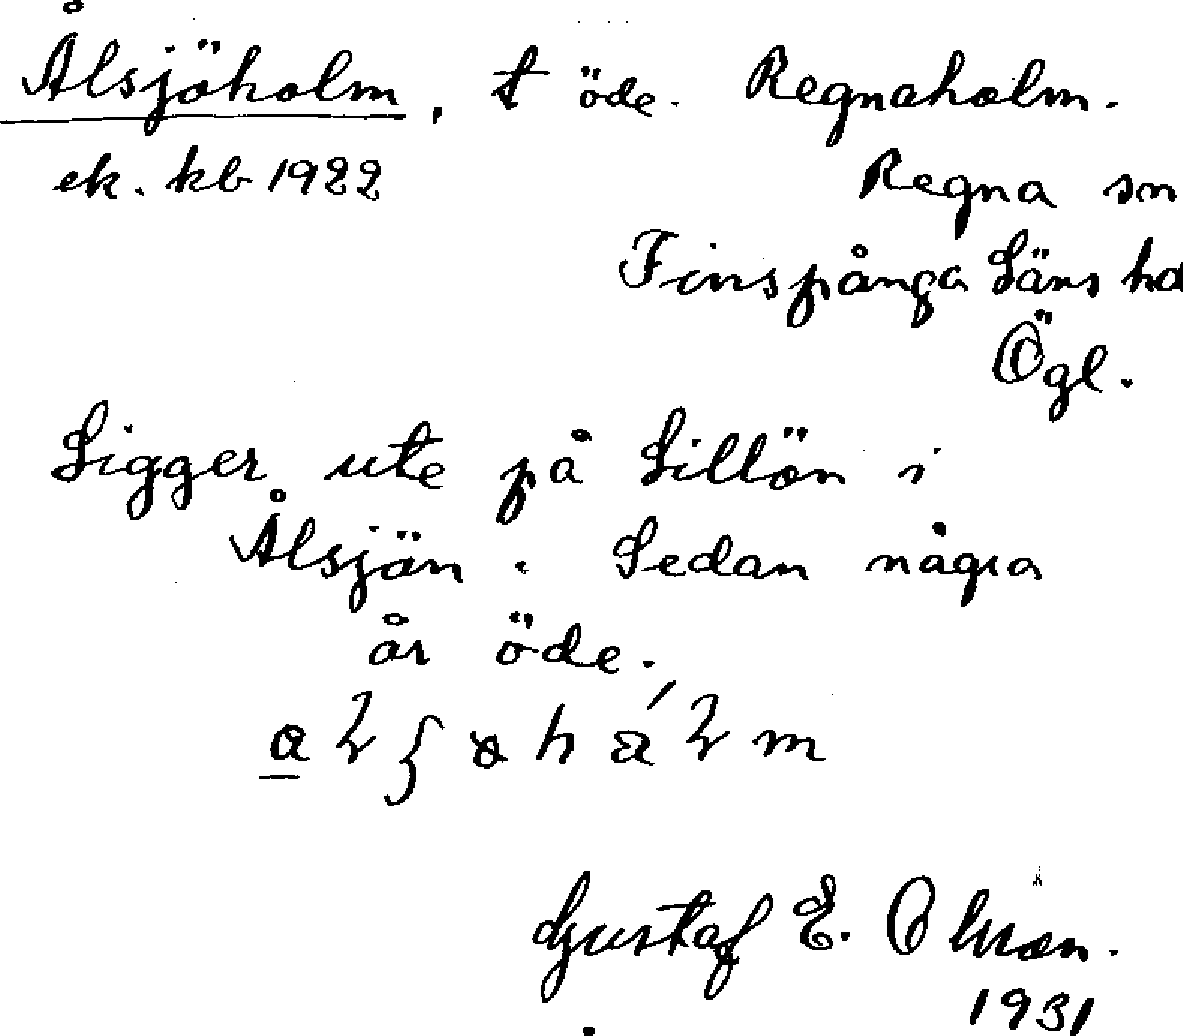 Ålsjöholm, t öde. Regnaholm.
ek. kb 1922
Regna sn
Finspånga Läns hd
Ögl.
Ligger ute på Lillön i
Ålsjön. Sedan några
år öde.
Gustaf E. Olsson.
1931